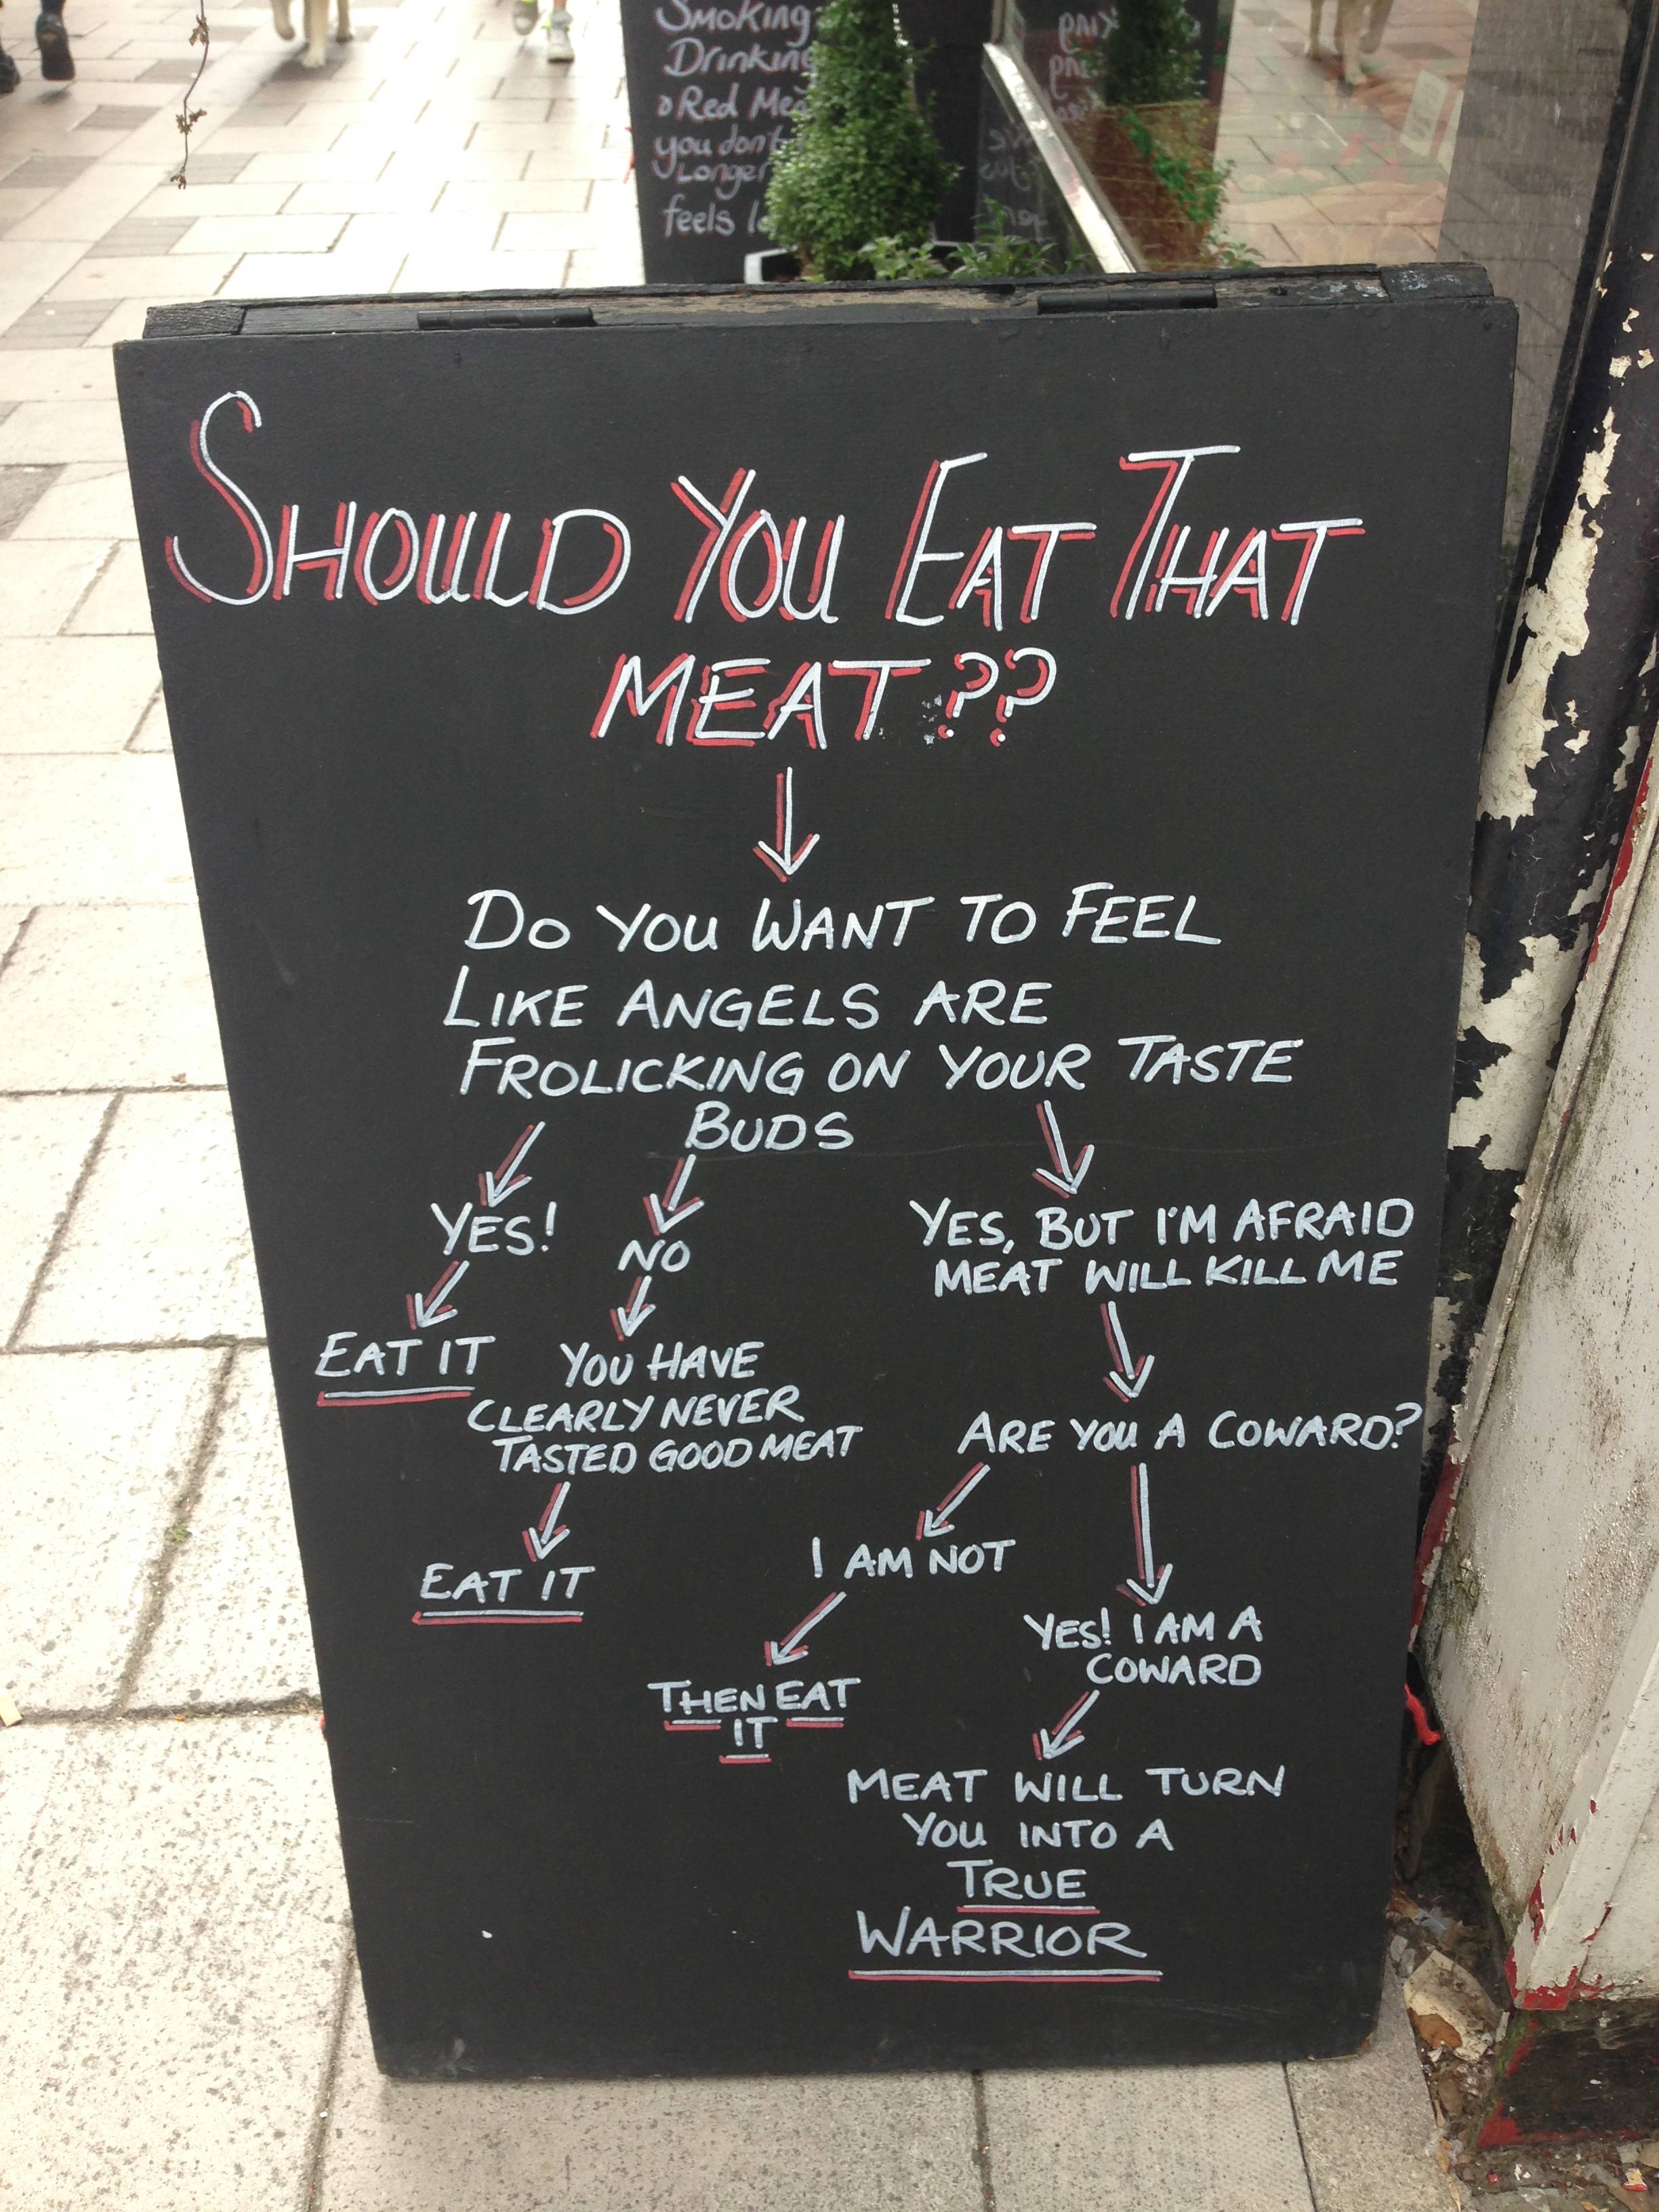 Smoking
Drinking
Red
you don't
Longer
feels
SHOULD YOU EAT THAT
MEAT??
DO YOU WANT TO FEEL
LIKE ANGELS ARE
FROLICKING ON YOUR TASTE
BUDS
YES!
EAT IT
NO
YOU HAVE
CLEARLY NEVER
TASTED GOOD MEAT
EAT IT
YES, BUT I'M AFRAID
MEAT WILL KILL ME
ARE YOU A COWARD?
I AM NOT
THEN EAT
IT
YES! I AM A
COWARD
MEAT WILL TURN
YOU INTO A
TRUE
WARRIOR